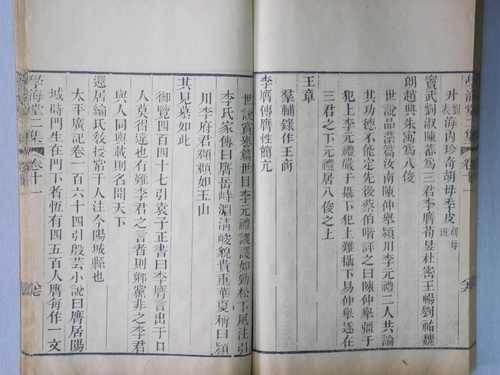 升 劉表 海內珍奇胡母季皮 胡母班
竇武劉淑陳蕃為三君李膺荀昱杜密王暢劉祐魏
朗趙典朱㝢為八俊
世說品藻篇汝南陳仲舉潁川李元禮二人共論
其功德不能定先後蔡伯喈評之曰陳仲舉彊于
犯上李元禮嚴于攝下犯上難攝下易仲舉遂在
三君之下元禮居八俊之上
王章
羣輔錄作王商
李膺傳膺性簡亢
世說賞譽篇世目李元禮謖謖如勁松下風注引
李氏家傳曰膺岳峙淵淸峻貌貴重華夏稱曰潁
川李府君頵頵如玉山
其見慕如此
御覽四百四十七引袁子正書曰李膺言出于口
人莫得違也有難李君之言者則鄉黨非之李君
與人同輿載則名聞天下
還居綸氏敎授常千人注今陽城縣也
太平廣記一百六十四引殷芸小說曰膺居陽
城時門生在門下者恆有四五百人膺每作一文
學海堂二集 卷十一